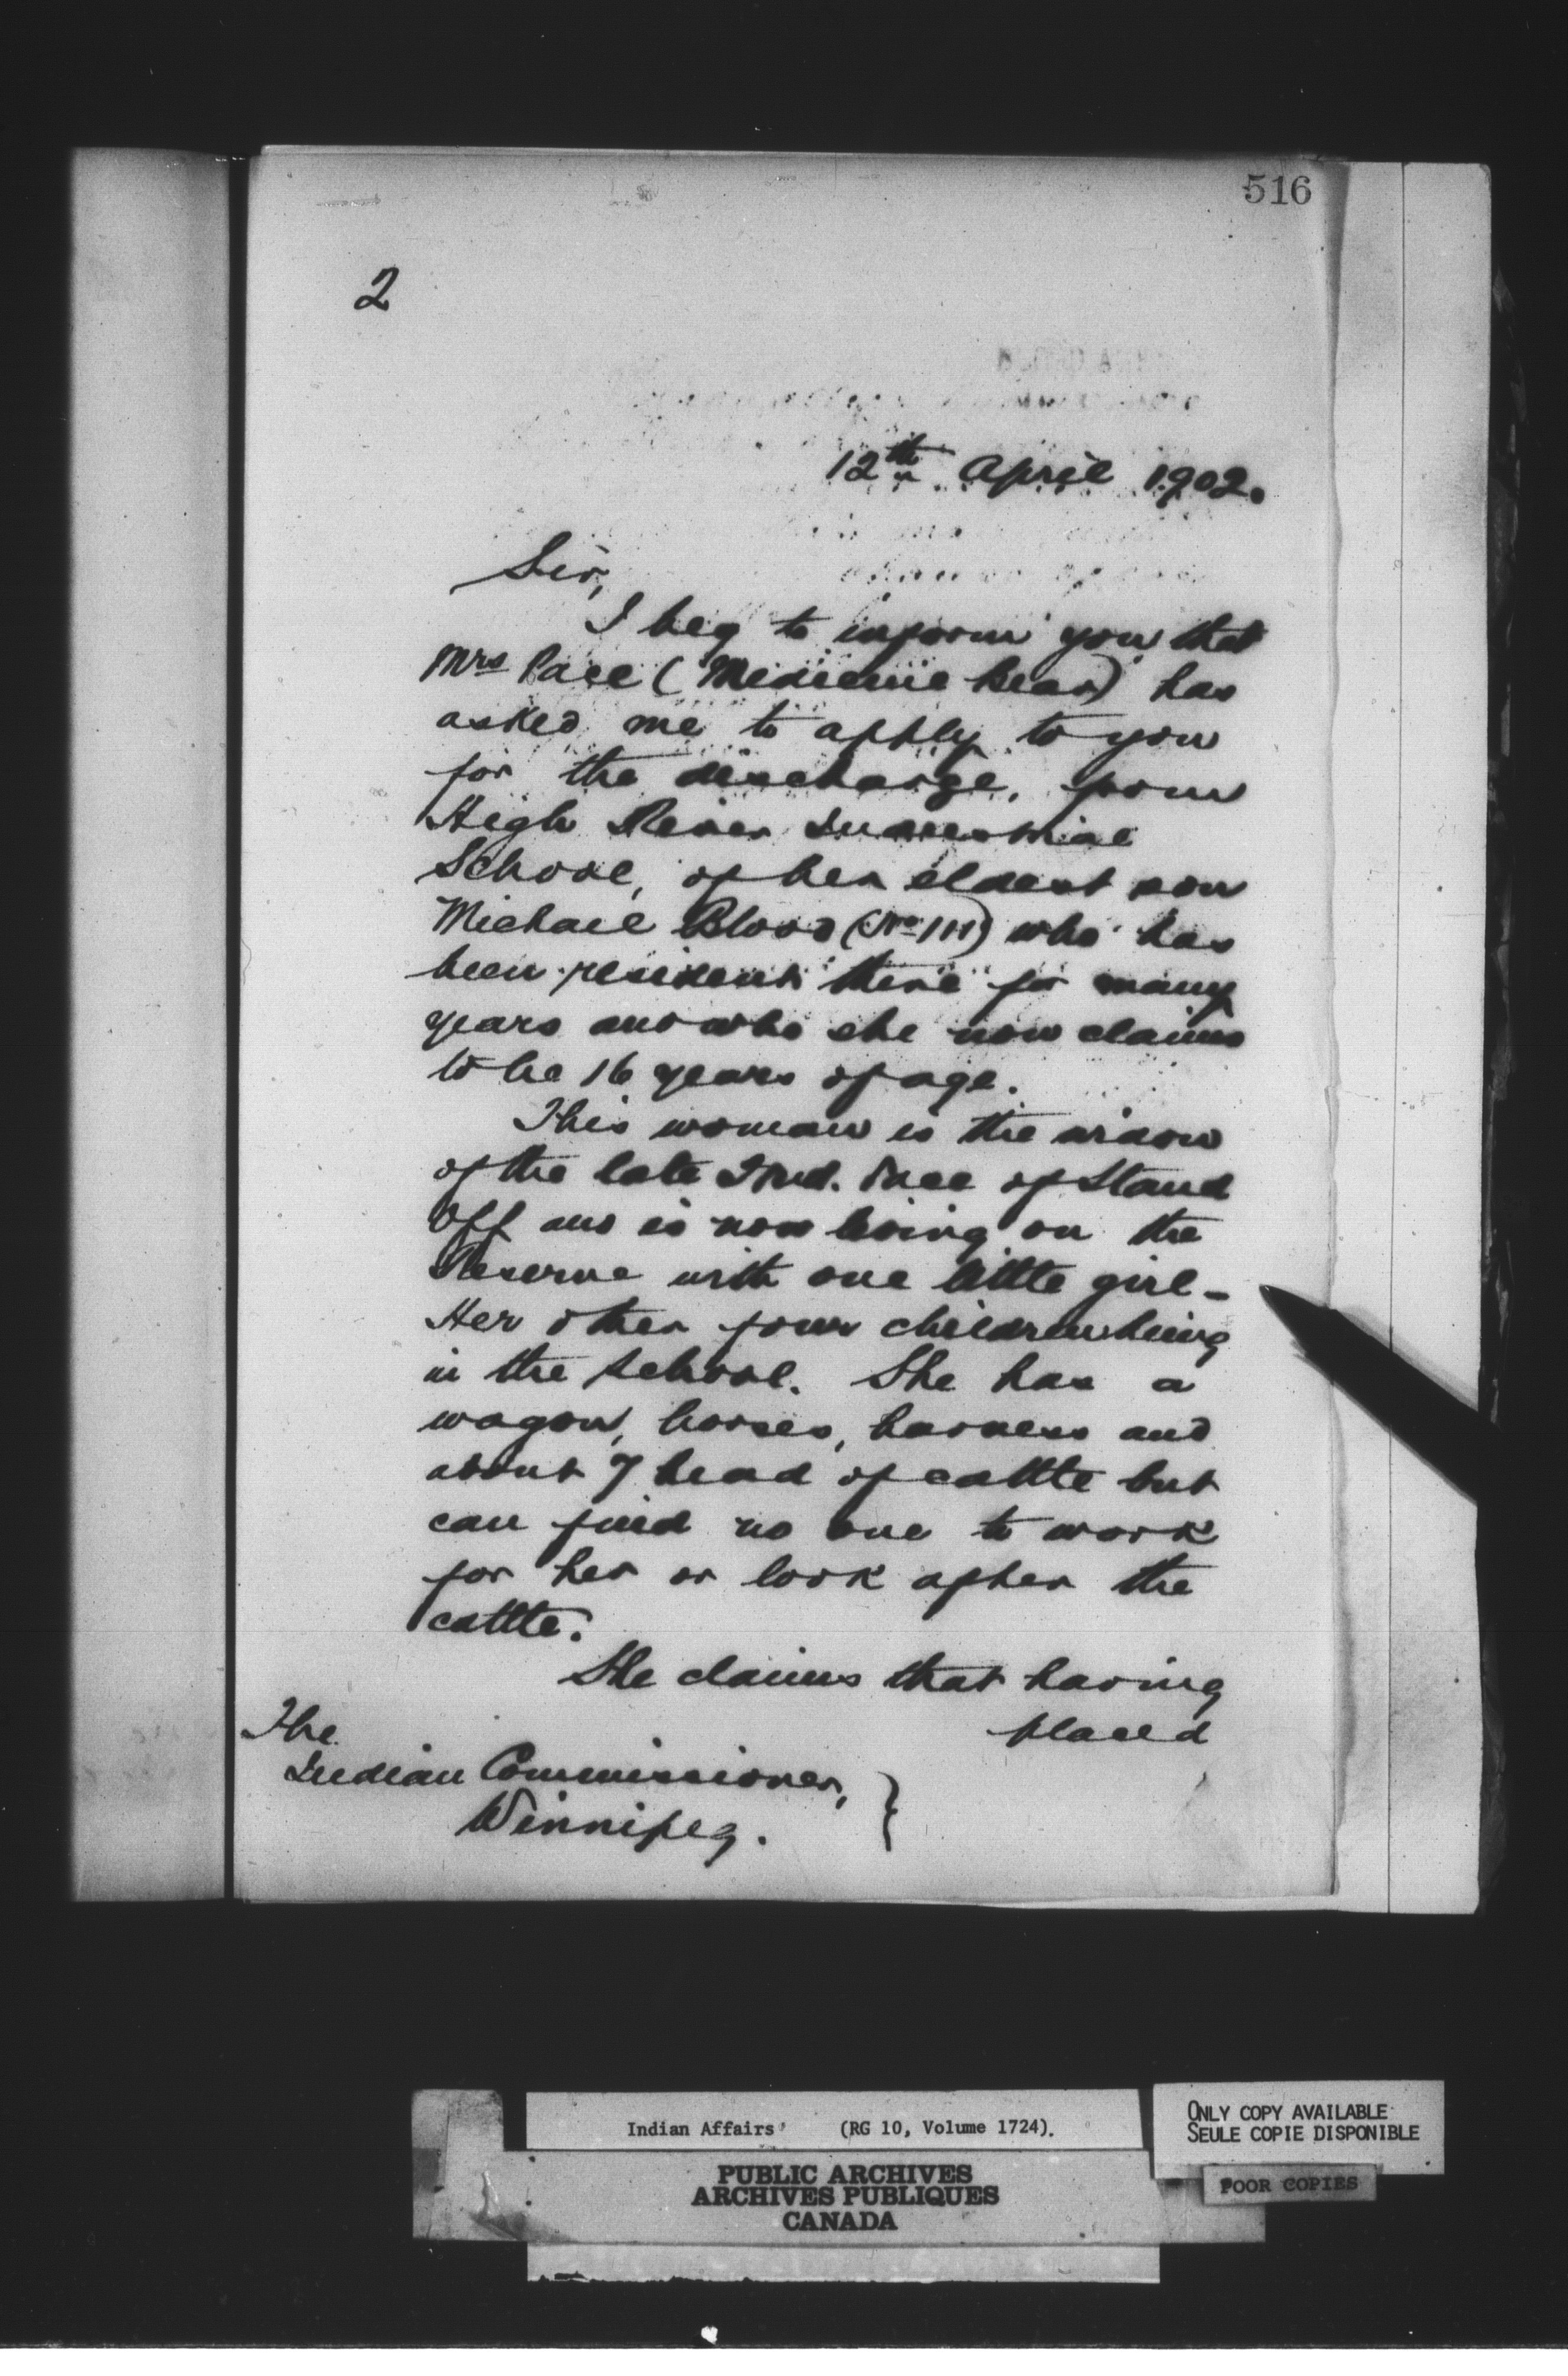 516
2
12th April 1902.
Sir,
I beg to inform you that
Mrs Pace (Medicine Bear) has
asked me to apply to you
for the discharge, from
High River Industrial
School, of her eldest son
Michael Blood (No 111) who has
been resident there for many
years and who she now claims
to be 16 years of age.
This woman is the widow
of the late Pace of Stand
Off and is now living on the
Reserve with one little girl -
Her other four children being
in the school. She has a
wagon, horses, harness and
about 7 head of cattle but
can find no one to work
for her or look after the
cattle.
She claims that having
placed
The
Indian Commissioner,
Winnipeg.
Indian Affairs (RG 10, Volume 1724).
PUBLIC ARCHIVES
ARCHIVES PUBLIQUES
CANADA
ONLY COPY AVAILABLE
SEULE COPIE DISPONIBLE
POOR COPIES